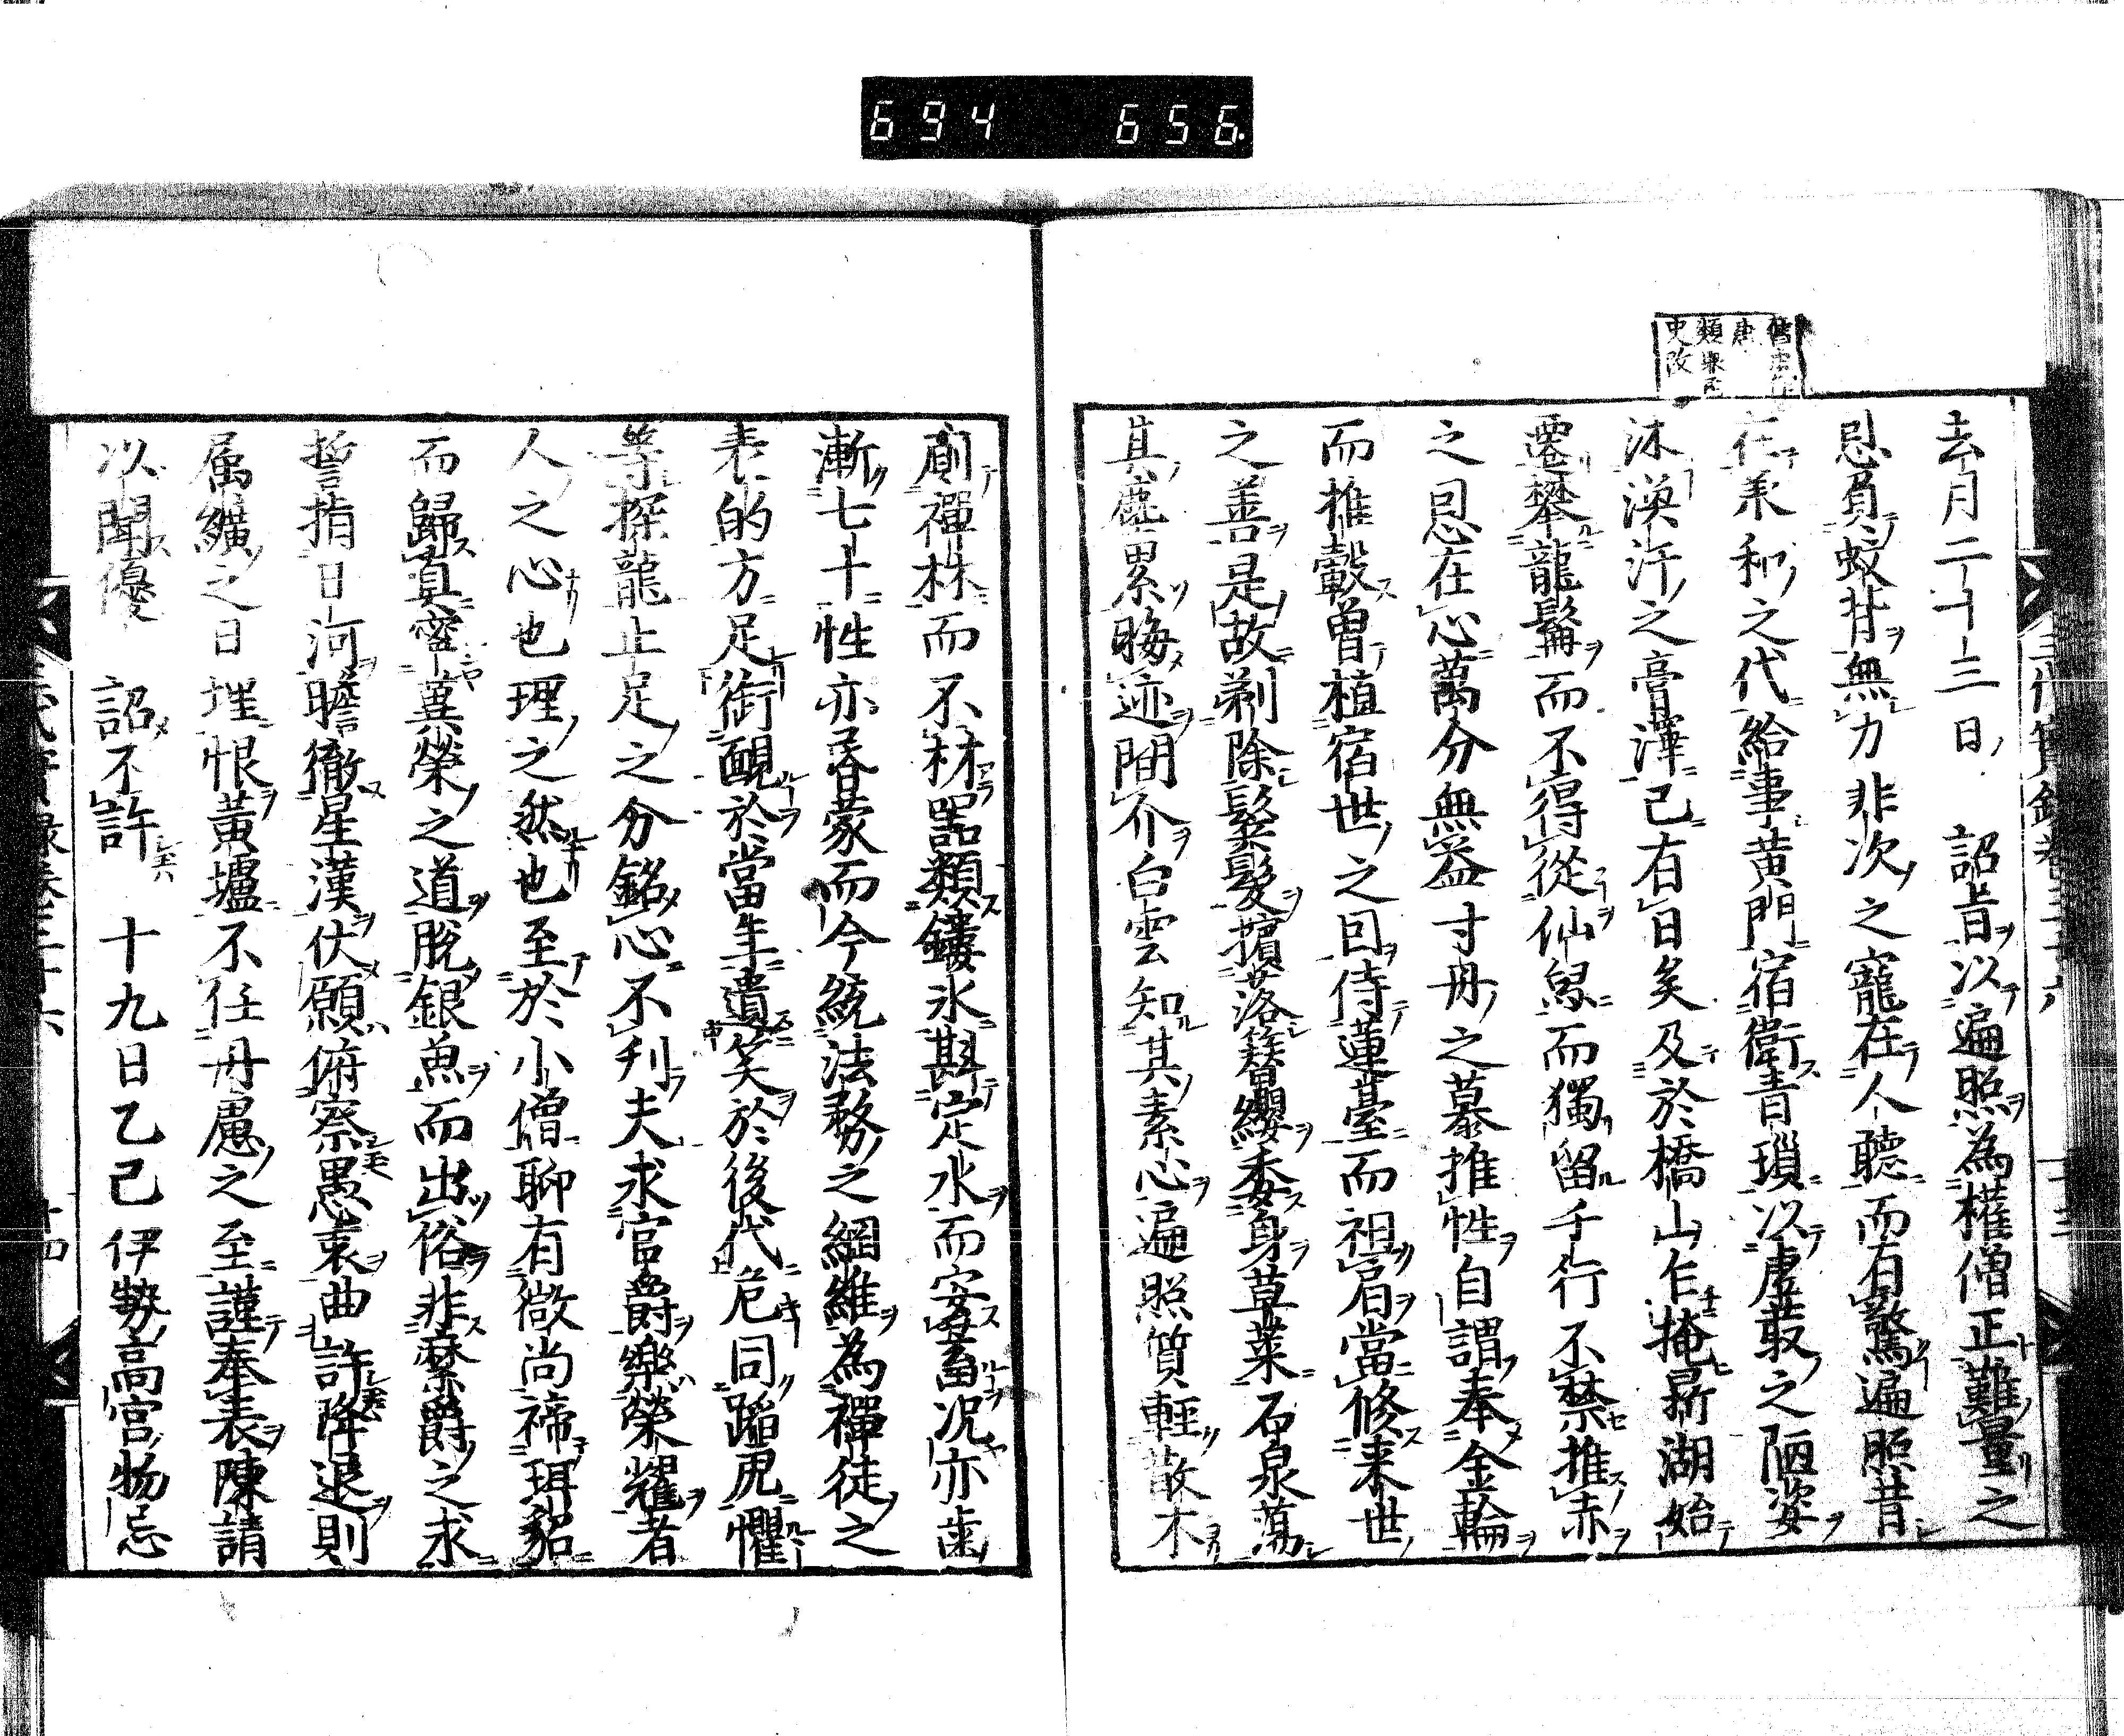 694 656
去月二十三日詔旨以遍照為權僧正難量之
恩負蚊背無力非次之寵在人聽而有驚遍照昔
在柔和之代給事黄門宿衛青瑣以虚菲之陋姿
沐渙汗之膏澤已有日矣及於橋山乍掩鼎湖始
遷攀龍髯而不得從仙舄而獨留千行不禁推赤
之恩在心萬分無益寸丹之慕推性自謂奉金輪
而推轂曽植宿世之因侍蓮臺而袒肩當修来世
之善是故剃除鬒髮擯落簪纓委身草菜石泉蕩
其塵累晦迹間介白雲知其素心遍照質軽散木
顧禪株而不材器類鏤氷斟定水而安蓄况亦歯
漸七十性亦昏蒙而今統法務之綱維為禪徒之
表的方足衒靦於當生遺笑於後代危同蹈虎懼
等探龍止足之分銘心不刋夫求富爵樂榮耀者
人之心也理之然也至於小僧聊有微尚褫珥貂
而歸真寧冀榮之道脱銀魚而出俗非縻爵之求
誓指日河瞻徹星漢伏願俯察愚衷曲許降退則
属纊之日埋恨黄壚不任丹慮之至謹奉表陳請
以聞優詔不許十九日乙己伊勢高宮物忌